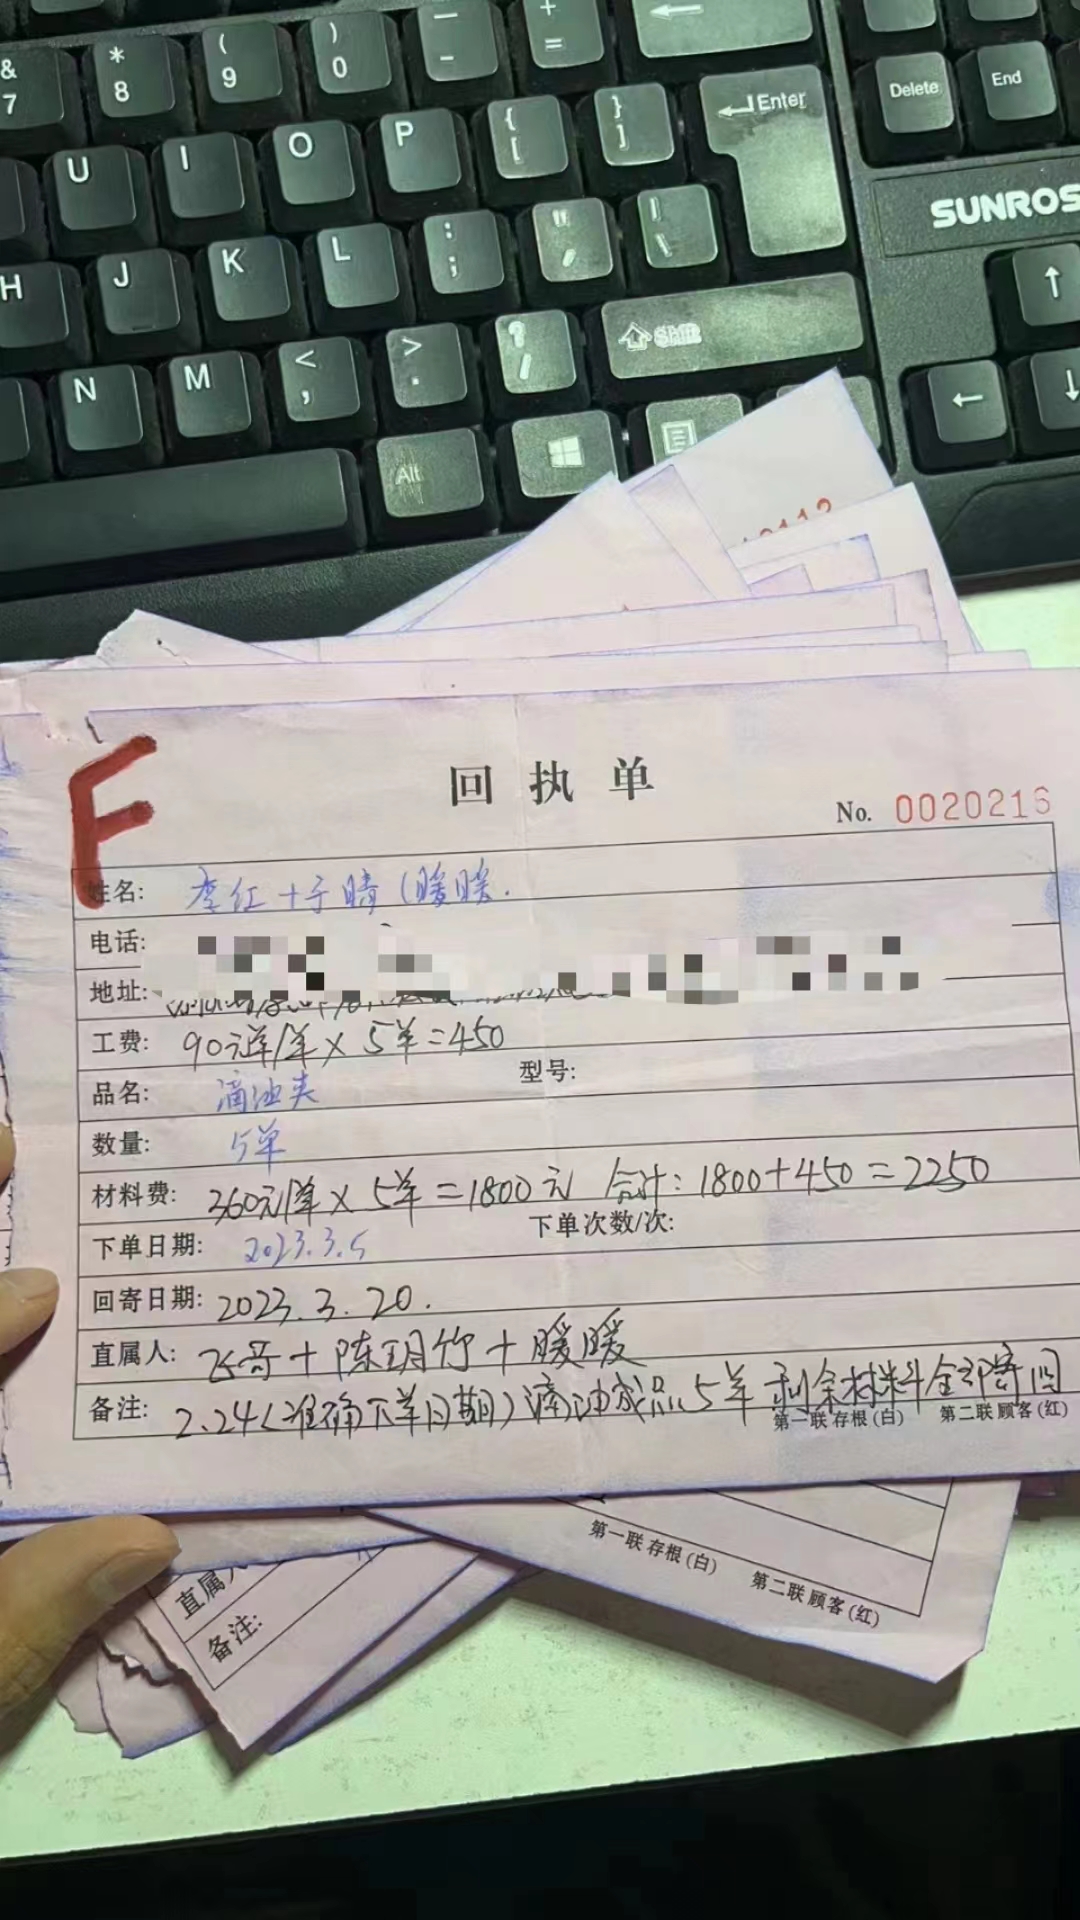 & 7
* 8
( 9
) 0
— -
+ =
←
U I O P { [ } ]
Enter
Delete
End
SUNROS
H J K L : ; " ' | \
N M < , > . ? /
Shift
Alt
↑
←
↓
回执单
No. 0020216
F
姓名: 李红+于晴(暖暖.
电话:
地址:
工费: 90元单/单×5单=450
品名: 滴油夹 型号:
数量: 5单
材料费: 360元/单×5单=1800元 合计:1800+450=2250
下单日期: 2023.3.5 下单次数/次:
回寄日期: 2023.3.20.
直属人: 飞哥+陈玥竹+暖暖
备注: 2.24(准确下单日期)滴油成品5单 剩余材料全部寄回
第一联 存根(白) 第二联 顾客(红)
第一联 存根(白) 第二联 顾客(红)
直属人
备注: